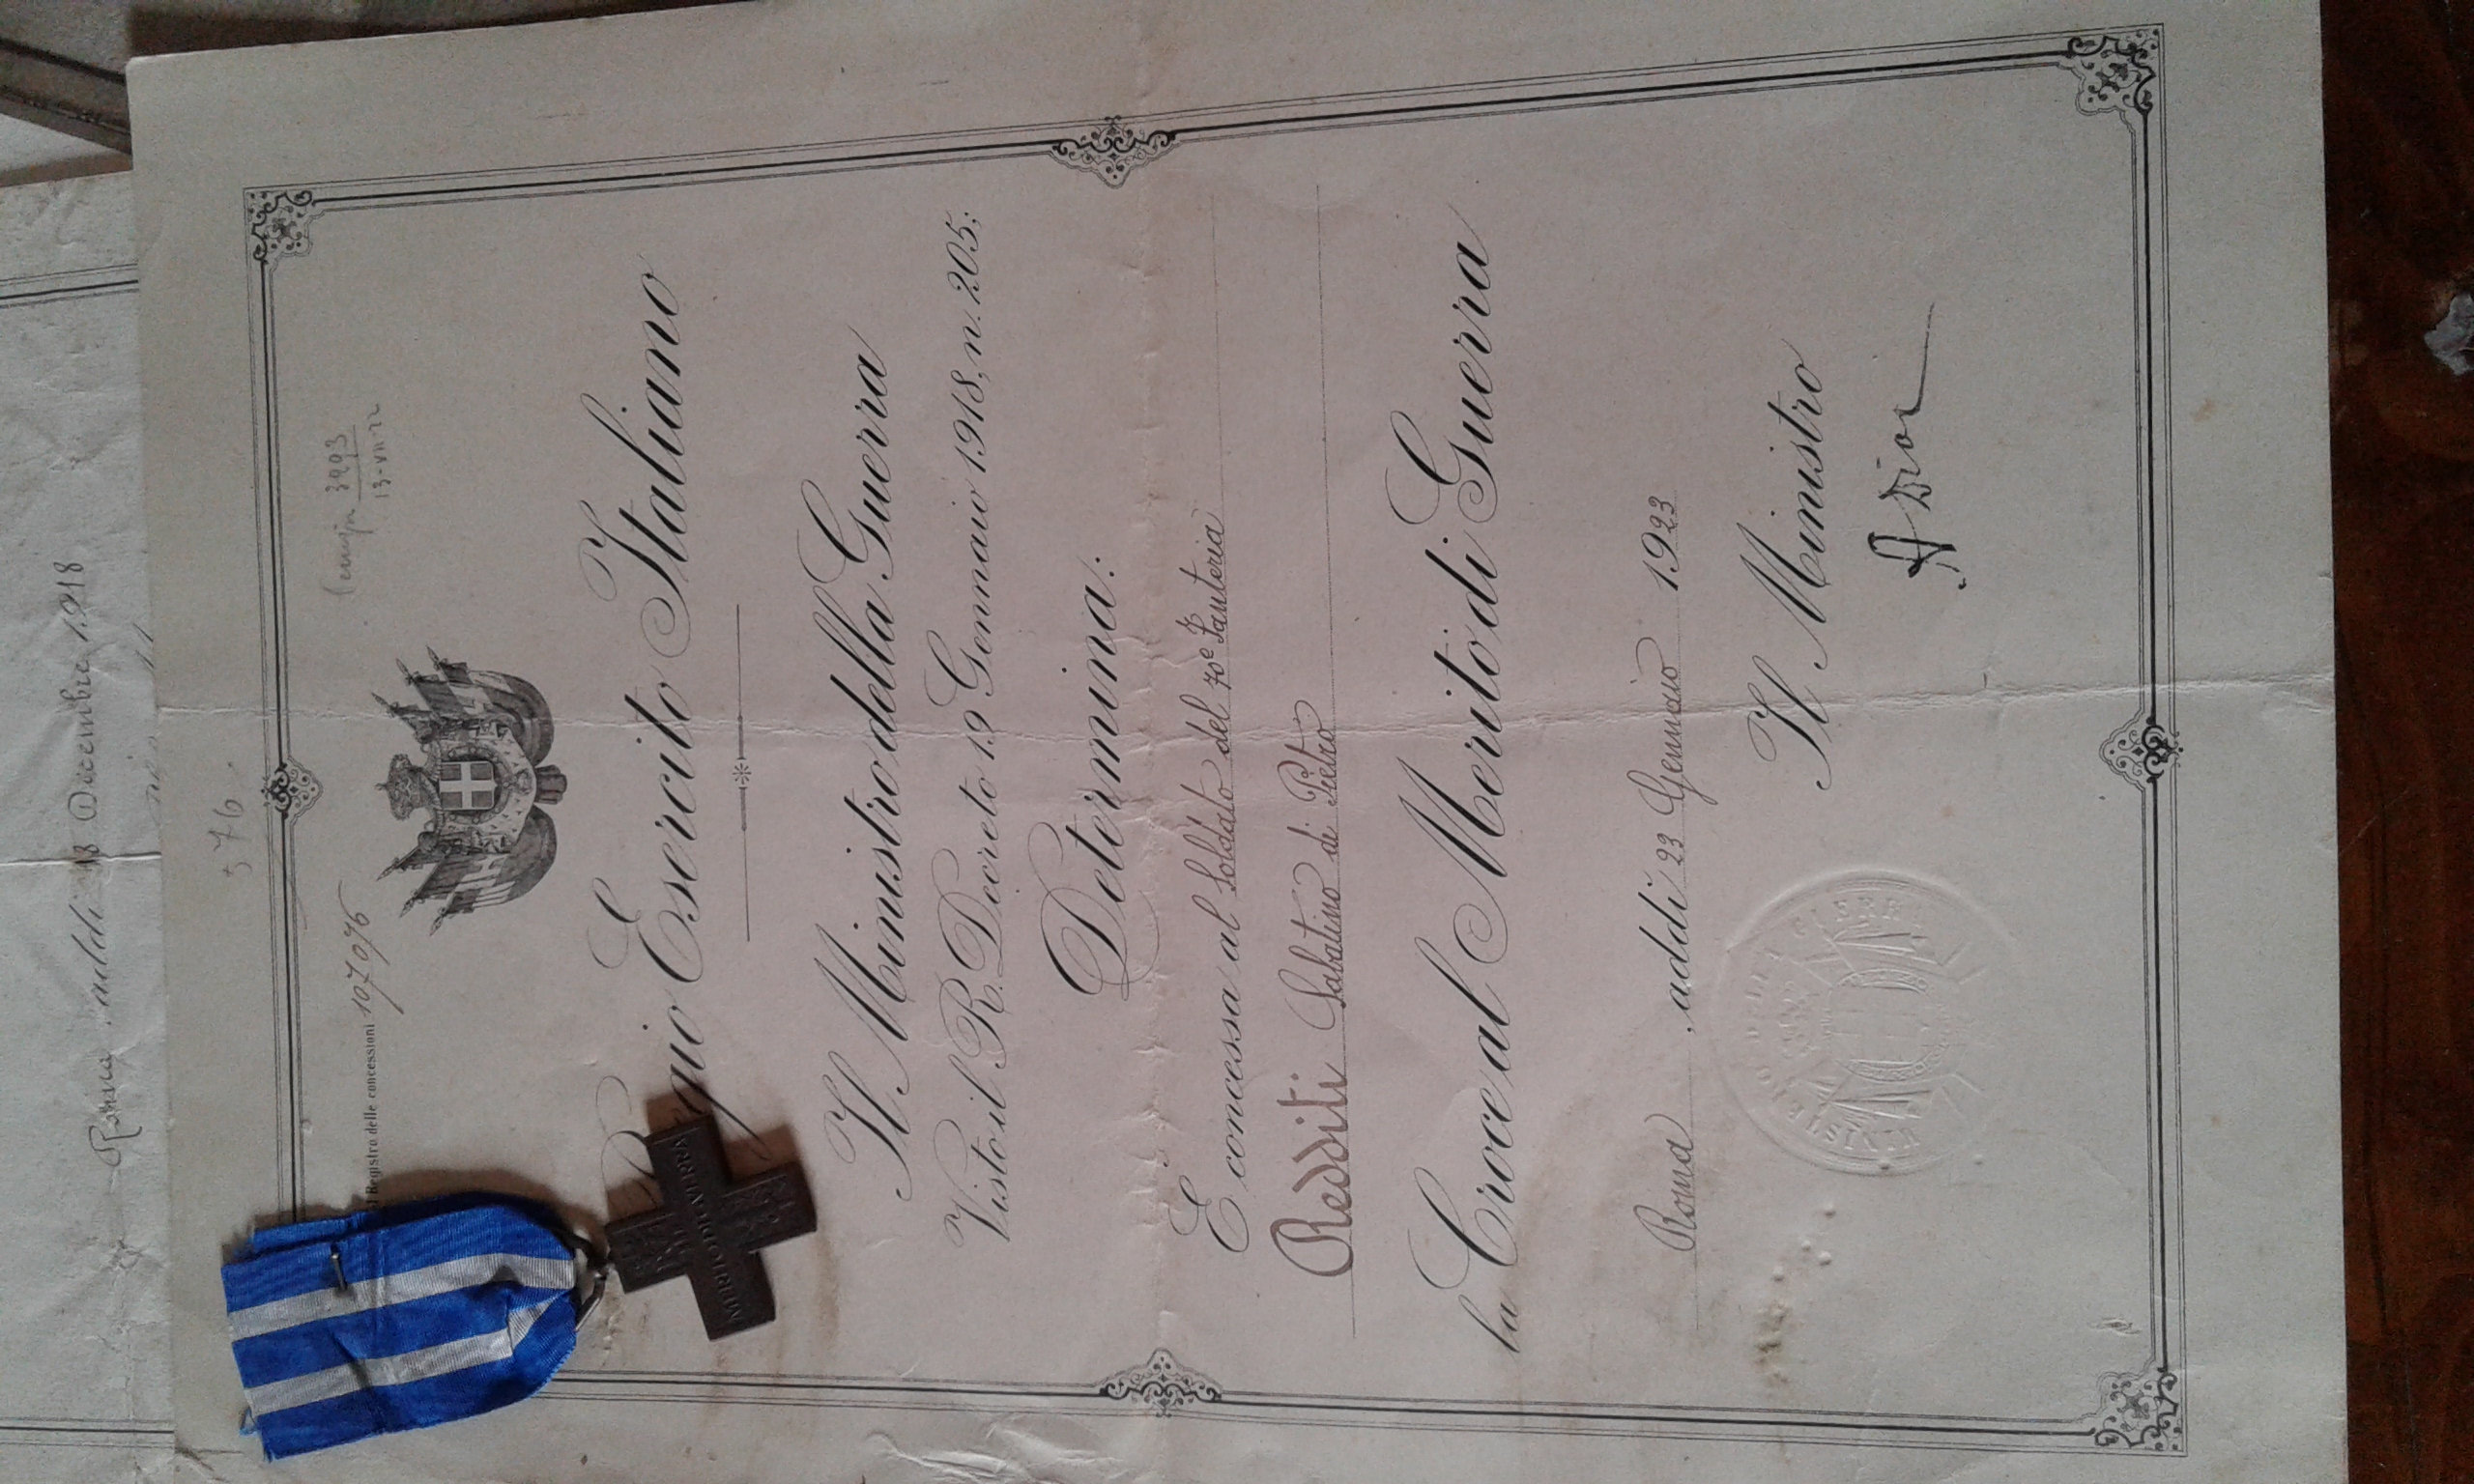 576.
Registro delle concessioni 107076
3293
13-VII-22
Regio Esercito Italiano
Il Ministro della Guerra
Visto il R. Decreto 19 Gennaio 1918, n. 205;
Determina:
È concessa al Soldato del 70º Fanteria
Redditi Sabatino di Pietro
la Croce al Merito di Guerra
Roma, addì 23 Gennaio 1923
Il Ministro
A Diaz
MINISTERO DELLA GUERRA
MERITO DI GUERRA
Roma addì 18 Dicembre 1918